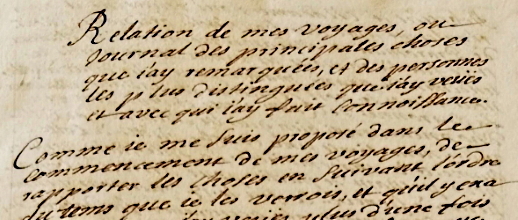 Relation de mes voyages, ou
Journal des principales choses
que i'ay remarquées, et des personnes
les plus distinguies que i'ay veües
et avec qui i'ay fait Connoissance.
Comme ie me suis proposé dans le
commencement de mes voyages, de
rapporter les choses en suivant l'ordre
du tems que ie les verrois, et qu'il y en a
veües plus d'une fois